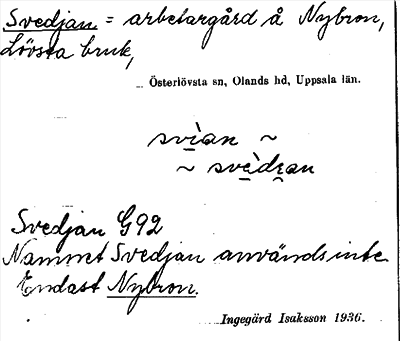 Svedjan = arbetargård å Nybron,
Lövsta bruk,
Österlövsta sn, Olands hd, Uppsala län.
svìan ~
~ svèdɛan
Svedjan G92
Namnet Svedjan används inte
Endast Nybron.
Ingegärd Isaksson 1936.